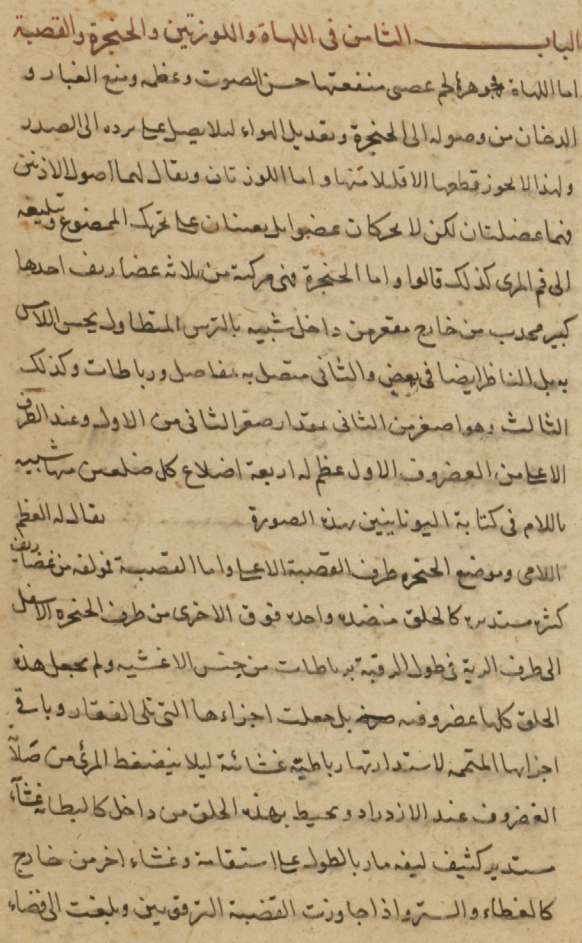 الباب الثامن فى اللهاة واللوزتين والحنجرة والقصبة
اما اللهاة فجوهرها لحم عصبى منفعتها حسن الصوت وعظمه ومنع الغبار و
الدخان من وصوله الى الحنجرة وتعديل الهواء ليلا يصل على برده الى الصدر
ولهذا لا يجوز قطعها الا قليلا منها واما اللوزتان ويقال لهما اصول الاذنين
فهما عضلتان لكن لا يحركان عضوا بل يعينان على تحريك الممضوغ وتبليغه
الى فم المرى كذلك قالوا واما الحنجرة فهى مركبة من ثلاثة غضاريف احدها
كبير محدب من خارج مقعر من داخل شبيه بالترس المتطاول يحس اللامس
به بل الناظر ايضا فى بعض والثانى متصل به بمفاصل ورباطات وكذلك
الثالث وهو اصغر من الثانى بمقدار صغر الثانى من الاول وعند الطرف
الاعلى من الغضروف الاول عظم له اربعة اضلاع كل ضلعين منها شبيه
باللام فى كتابة اليونانيين بهذه الصورة يقال له العظم
اللامى وموضع الحنجرة طرف القصبة الاعلى واما القصبة فمولفه من غضاريف
كثيره مستديره كالحلق منضده واحده فوق الاخرى من طرف الحنجره الاسفل
الى طرف الرية فى طول الرقبة برباطات من جنس الاغشيه ولم يجعل هذه
الحلق كلها غضروفيه بل جعلت اجزاءها التى تلى الفقار وباقى
اجزايها المتممه لاستدارتها رباطية غشائية ليلا ينضغط المرئ من صلابة
الغضروف عند الازدراد ويحيط بهذه الحلق من داخل كالبطانة غشاء
مستدير كثيف ليفه مار بالطول على استقامة وغشاء اخر من خارج
كالغطاء والستر واذا جاوزت القصبة الترقوتين وبلغت الى فضاء